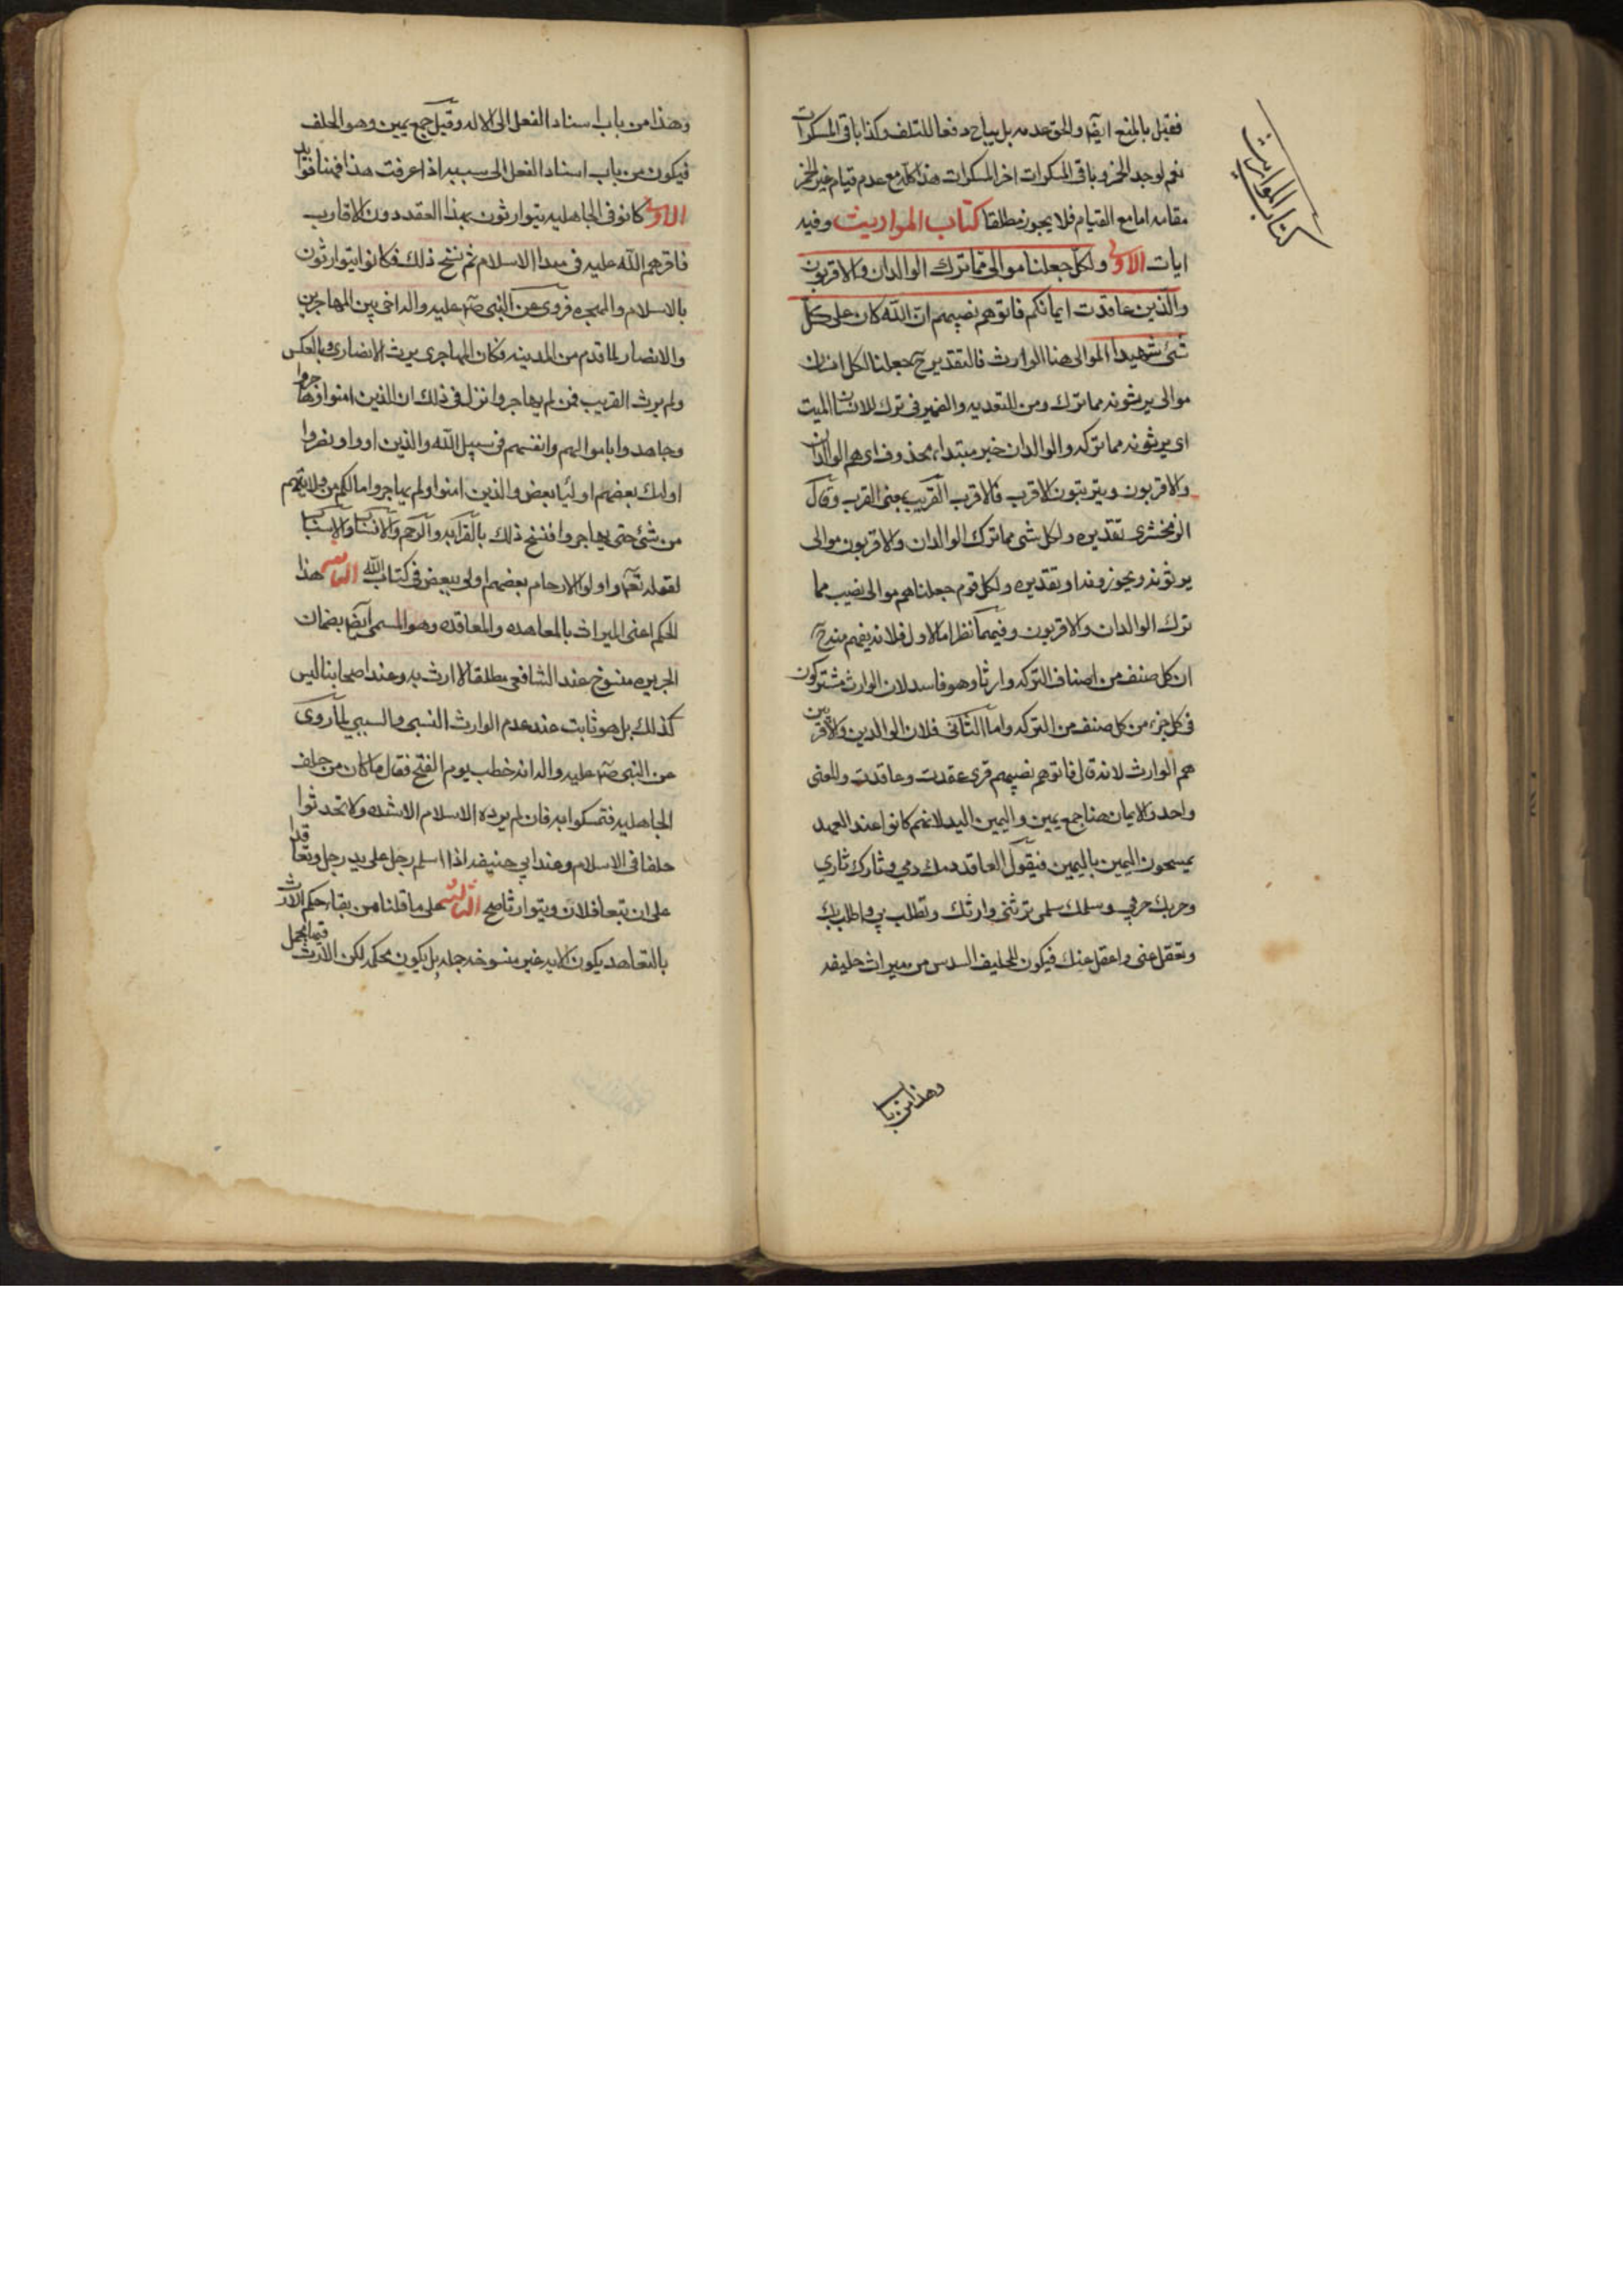 فقيل بالمنع ايضا والحق عدمه بل يباح دفعا للتلف وكذا باقي المسكرات
نعم لو وجد الخمر وباقي المسكرات اخر المسكرات هذا كله مع عدم قيام غير الخمر
مقامه اما مع القيام فلا يجوز مطلقا كتاب المواريث وفيه
ايات الاولى ولكل جعلنا موالي مما ترك الوالدان والاقربون
والذين عاقدت ايمانكم فاتوهم نصيبهم ان الله كان على كل
شئ شهيدا الموالي هنا الوارث فالتقدير ح جعلنا لكل انسان
موالي يرثونه مما ترك ومن للتعديه والضمير في ترك للانسان الميت
اي يرثونه مما تركه والوالدان خبر مبتداء محذوف اي هم الوالدان
والاقربون ويترتبون الاقرب فالاقرب القريب بمعنى القرب وقال
الزمخشري تقديره ولكل شى مما ترك الوالدان والاقربون موالى
يرثونه ويجوز وتقديره ولكل قوم جعلناهم موالى نصيب مما
ترك الوالدان والاقربون وفيهما نظر اما الاول فلانه يفهم منه ح
ان كل صنف من اصناف التركه وارثا وهو فاسد لان الوارث مشتركون
في كل جزء من كل صنف من التركه واما الثاني فلان الوالدين والاقربين
هم الوارث لانه قال فاتوهم نصيبهم قرى عقدت وعاقدت والمعنى
واحد والايمان هنا جمع يمين واليمين اليد لانهم كانوا عند العهد
يمسحون اليمين باليمين فيقول العاقد دمك دمي وثارك ثاري
وحربك حربي وسلمك سلمى ترثنى وارثك وتطلب بي واطلب بك
وتعقل عنى واعقل عنك فيكون للحليف السدس من ميراث حليفه
وهذا من باب
كتاب المواريث
وهذا من باب اسناد الفعل الى الاله وقيل جمع يمين وهو الحلف
فيكون من باب اسناد الفعل الى سببه اذا عرفت هذا فهنا فوايد
الاولى كانو في الجاهليه يتوارثون بهذا العقد دون الاقارب
فاقرهم الله عليه في مبدا الاسلام ثم نسخ ذلك فكانوا يتوارثون
بالاسلام والهجره فروى عن النبي ص عليه واله اخى بين المهاجرين
والانصار لما قدم من المدينه فكان المهاجرى يرث الانصارى وبالعكس
ولم يرث القريب ممن لم يهاجر وانزل في ذلك ان الذين امنوا وهاجروا
وجاهدوا باموالهم وانفسهم في سبيل الله والذين اووا ونصروا
اولئك بعضهم اولياء بعض والذين امنوا ولم يهاجروا مالكم من ولايتهم
من شئ حتى يهاجروا فنسخ ذلك بالقرابه والرحم والانساب والاسباب
لقوله تعالى واولوا الارحام بعضهم اولى ببعض في كتاب الله الثانيه هذا
الحكم اعنى الميراث بالمعاهده والمعاقده وهو المسمى ايضا بضمان
الجريره منسوخ عند الشافعي مطلقا لا ارث به وعند اصحابنا ليس
كذلك بل هو ثابت عند عدم الوارث النسبي والسببي لما روى
عن النبي ص عليه واله انه خطب يوم الفتح فقال ما كان من حلف
الجاهليه فتمسكوا به فان لم يزده الاسلام الا شده ولا تحدثوا
حلفا في الاسلام وعند ابي حنيفه اذا اسلم رجل على يد رجل وتعاقدا
على ان يتعاقلان ويتوارثا صح الثالثه على ما قلناه من بقاء حكم الارث
بالتعاهد يكون الايه غير منسوخه جمله بل يكون محكمه لكن الارث فيها مجمل